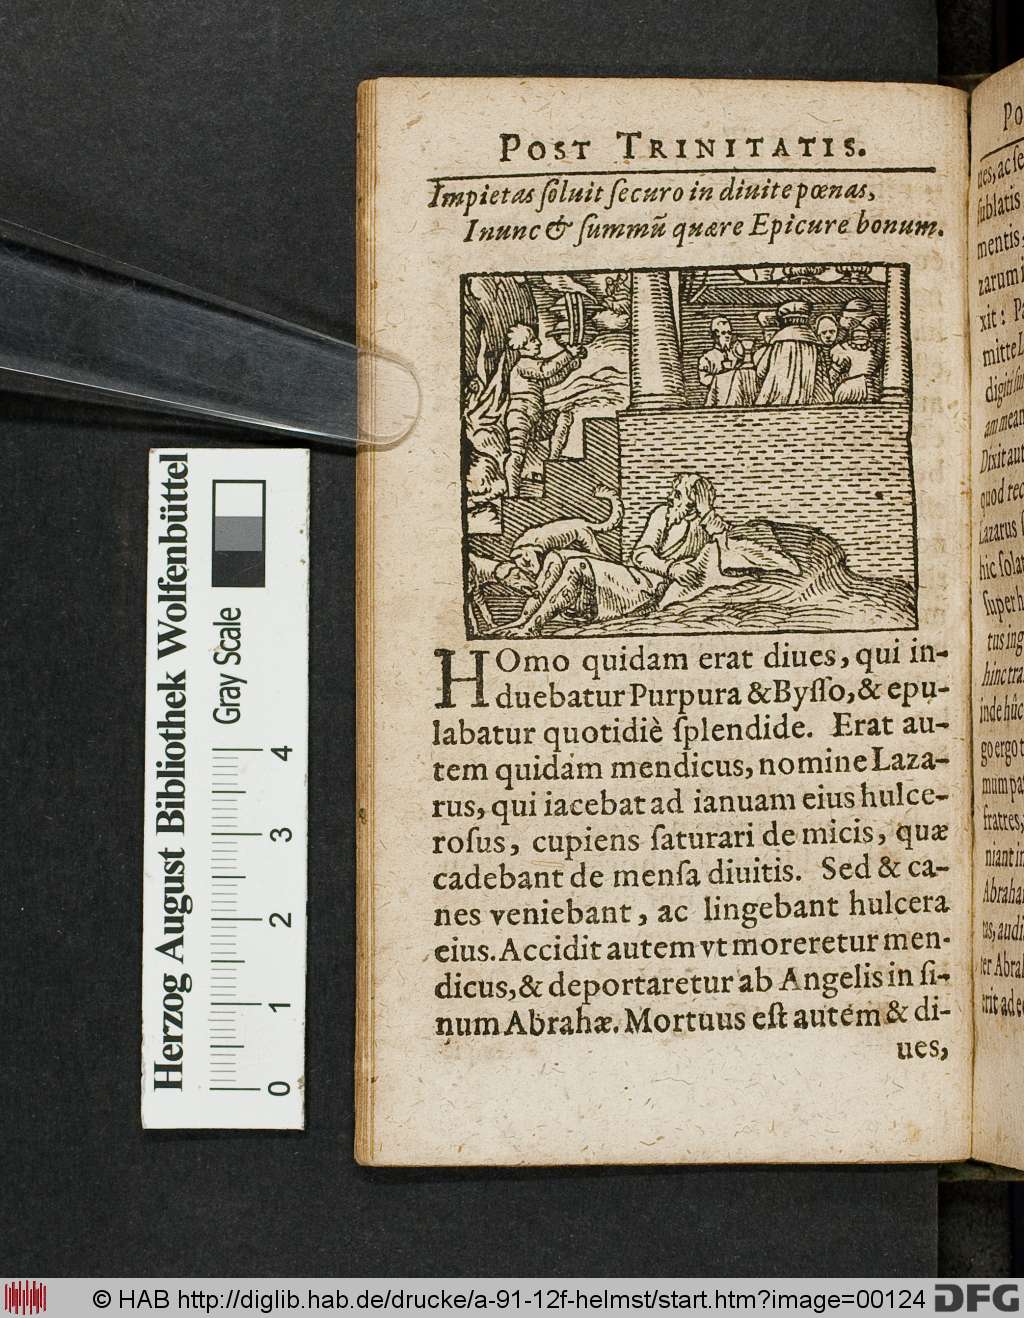 POST TRINITATIS.
Impietas ſoluit ſecuro in diuite pœnas,
Inunc & ſummū quære Epicure bonum.
HOmo quidam erat diues, qui in-
duebatur Purpura & Byſſo, & epu-
labatur quotidiè ſplendide. Erat au-
tem quidam mendicus, nomine Laza-
rus, qui iacebat ad ianuam eius hulce-
roſus, cupiens ſaturari de micis, quæ
cadebant de menſa diuitis. Sed & ca-
nes veniebant, ac lingebant hulcera
eius. Accidit autem vt moreretur men-
dicus, & deportaretur ab Angelis in ſi-
num Abrahæ. Mortuus eſt autem & di-
ues,
Po
ues, ac ſe
ſublatis
mentis,
zarum i
xit: P
mitte L
digiti ſu
am mean
Dixit aut
quod rec
Lazarus
hic ſolat
Super h
tus ing
hinc tra
inde hûc
go ergo t
mum pa
fratres,
niant in
Abraha
tas, audi
ter Abra
erit ad e
Herzog August Bibliothek Wolfenbüttel
Gray Scale
0 1 2 3 4
© HAB http://diglib.hab.de/drucke/a-91-12f-helmst/start.htm?image=00124
DFG